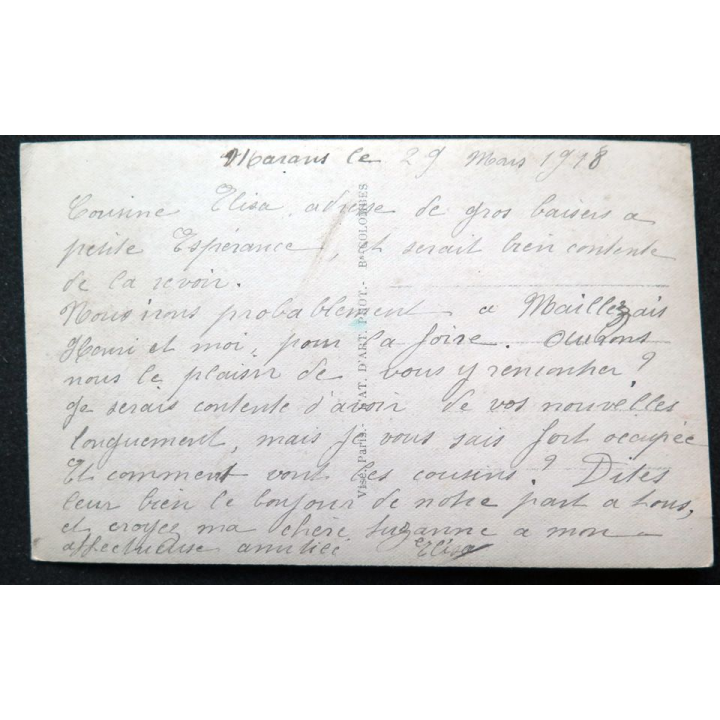 Marans le 29 Mars 1918
Cousine Elisa adresse de gros baisers a
petite Espérance, et serait bien contente
de la revoir.
Nous irons probablement a Maillezais
Henri et moi, pour la foire. Aurons
nous le plaisir de vous y rencontrer ?
Je serais contente d'avoir de vos nouvelles
longuement, mais je vous sais fort occupée
Et comment vont les cousins ? Dites
leur bien le bonjour de notre part a tous,
et croyez ma chère Suzanne a mon
affectueuse amitiée Elisa
Visé. Paris.- CAT. D'ART. PHOT.- Bs COLOMBES